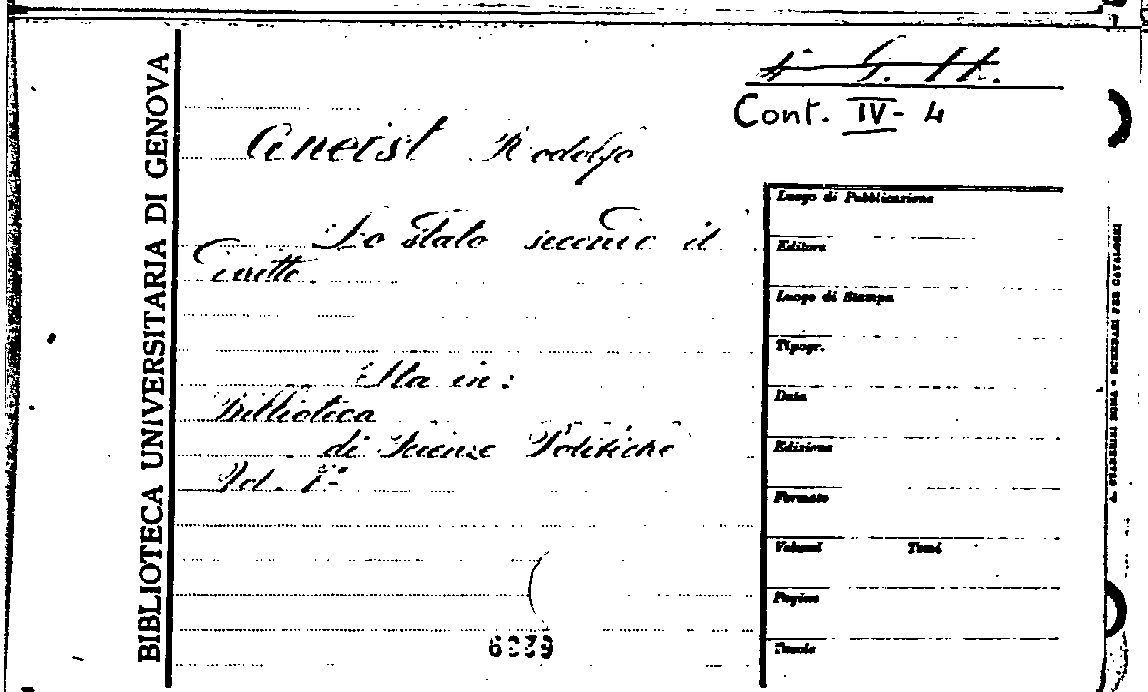 BIBLIOTECA UNIVERSITARIA DI GENOVA
Cont. IV - 4
Gneist Rodolfo
Lo stato secondo il
diritto.
Sta in:
Biblioteca
di Scienze Politiche
Vol. 7º
Luogo di Pubblicazione
Editore
Luogo di Stampa
Tipogr.
Data
Edizione
Formato
Volumi Tomi
Pagine
Tavole